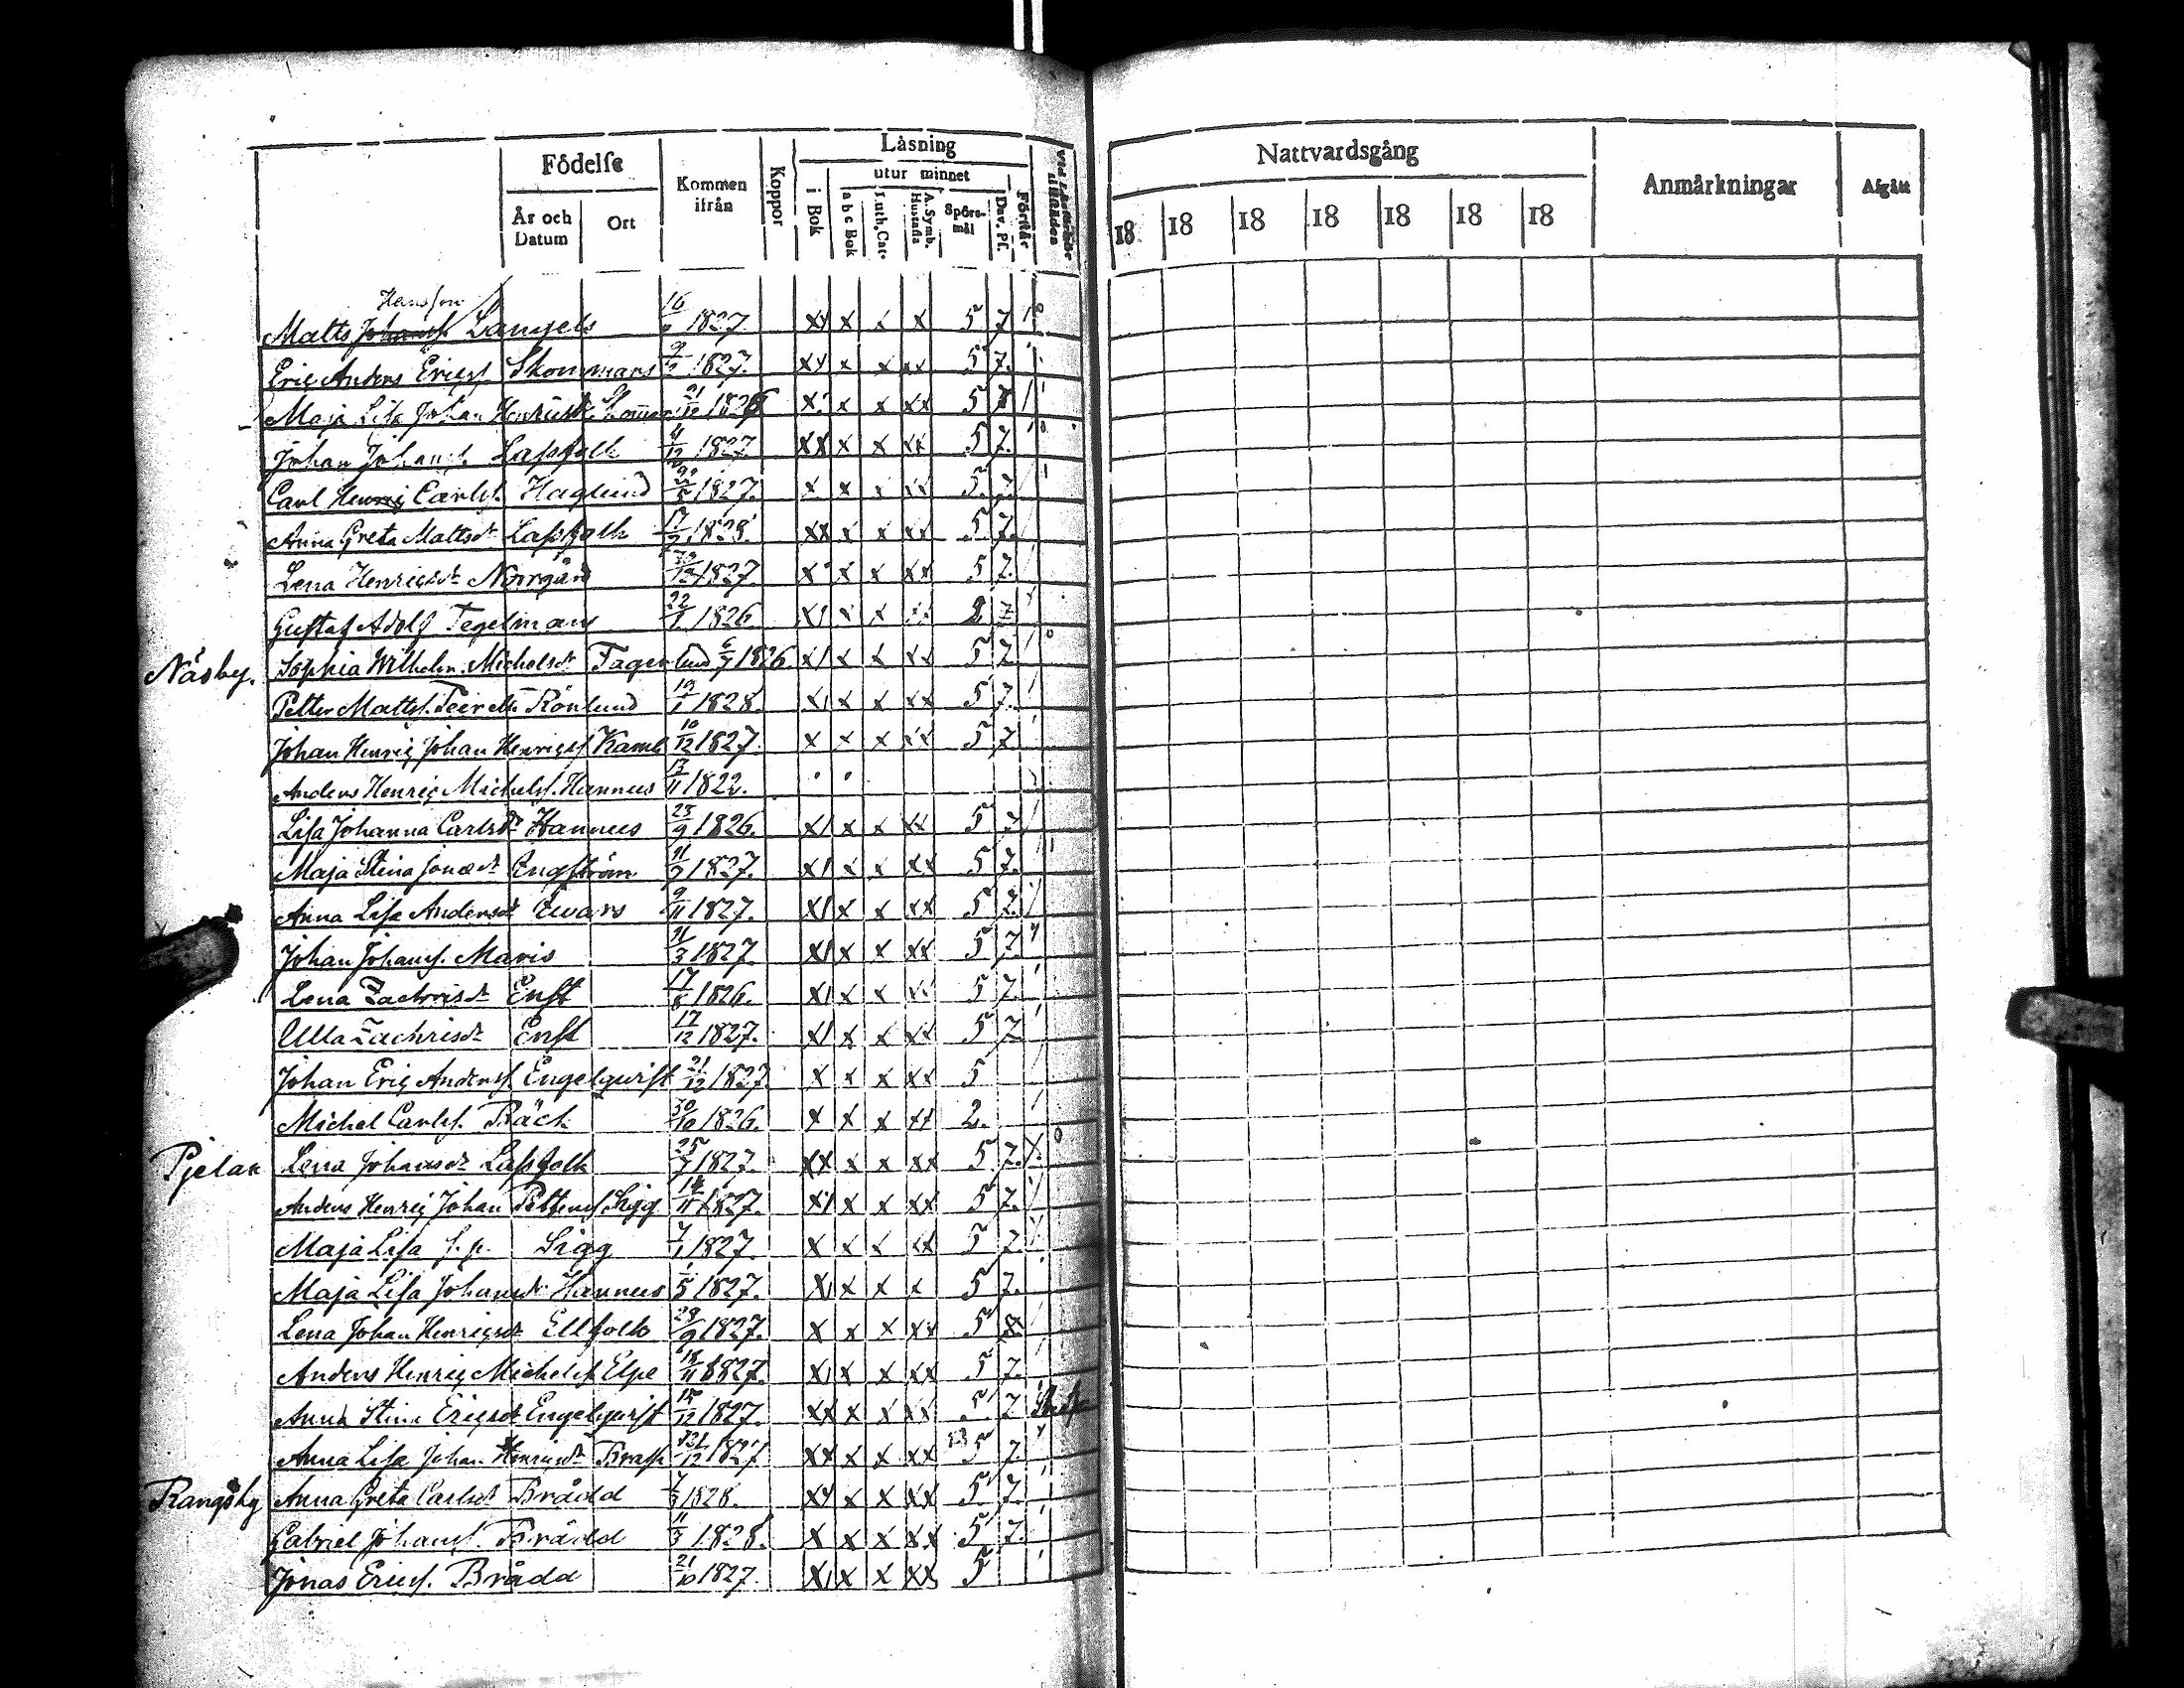 Födelse
Kommen ifrån
Koppor
Låsning
utur minnet
År och Datum
Ort
i Bok
a b c Bok
Luth. Cat.
A. Symb. Hustafla
Spörsmål
Dav. Pſ.
Förſtår
Nattvardsgång
Anmärkningar
Afgått
18 18 18 18 18 18 18
Hansson
Matts Johansſ. Langels 1827 x x x 5 7
Eric Anders Ericsſ. Skommars 9/2 1827. xx x x xx 5 7.
Maja Lisa Johan Henricsdr 21/12 182 x x xx 5
Johan Johansſ. Lassfolk 4/12 1827 xx x x xx 5 7.
Carl Henriç Carlsſ. Haglund 1827. x x x xx 5. 7
Anna Greta Mattsdr Lassfolk 17/2 1828. xx x x xx 5 7.
Lena Henricsdr Norrgård 1827. x x xx 5 7.
Gustaf Adolf Tegelmans 22/1 1826. x1 x x 2 7
Näsby. Sophia Wilhelm. Michelsdr Fagerlund 6/7 1826 x1 x x xx 5 7
Petter Mattsſ. Rönlund 19/1 1828. x1 x x xx 5 7.
Johan Henriç Johan Henriçsſ Kamb 10/12 1827. x x x xx 5 7.
Anders Henriç Michelsſ. Hannus 13/11 1822.
Lisa Johanna Carlsdr Hannus 23/9 1826. x1 x x xx 5 7
Maja Stina Jonædr Engström 1827. x1 x x xx 5 7.
Anna Lisa Andersdr Ewars 9/11 1827. x1 x x xx 5 7.
Johan Johansſ. Maris 11/3 1827. x1 x x xx 5 7.
Lena Zachrisdr Enſt 17/8 1826. x1 x x xx 5 7.
Ulla Zachrisdr Enſt 17/12 1827. x1 x x xx 5 7
Johan Eriç Andersſ. Engelqwiſt 21/12 1827. x x x xx 5
Michel Carlsſ. Bäck 30/10 1826. x x x xx 2.
Pjelax Lena Johansdr Lassfolk 25/7 1827. xx x x xx 5 7.
Anders Henriç Johan Pettersſ Sigg 14/11 1827. x1 x x xx 5 7.
Maja Lisa Sigg 7/1 1827. x x x xx 5 7.
Maja Lisa Johansdr Hannus 1/5 1827. x1 x x x 5 7.
Lena Johan Henriçsdr Ellfolk 29/9 1827. x x x xx 5
Anders Henriç Michelsſ Elpe 18/11 1827. x1 x x xx 5 7.
Anna Stina Ericsdr Engelqwiſt 15/12 1827. xx x x xx 5 7
Anna Lisa Johan Henricsdr Brask 1827 xx x x xx 5 7.
Rangsby Anna Greta Carlsdr Brådd 7/3 1828. xx x x xx 5 7.
Gabriel Johansſ. Brådd 11/3 1828. x x x xx 5 7.
Jonas Ericsſ. Brådd 21/10 1827. x1 x x xx 5